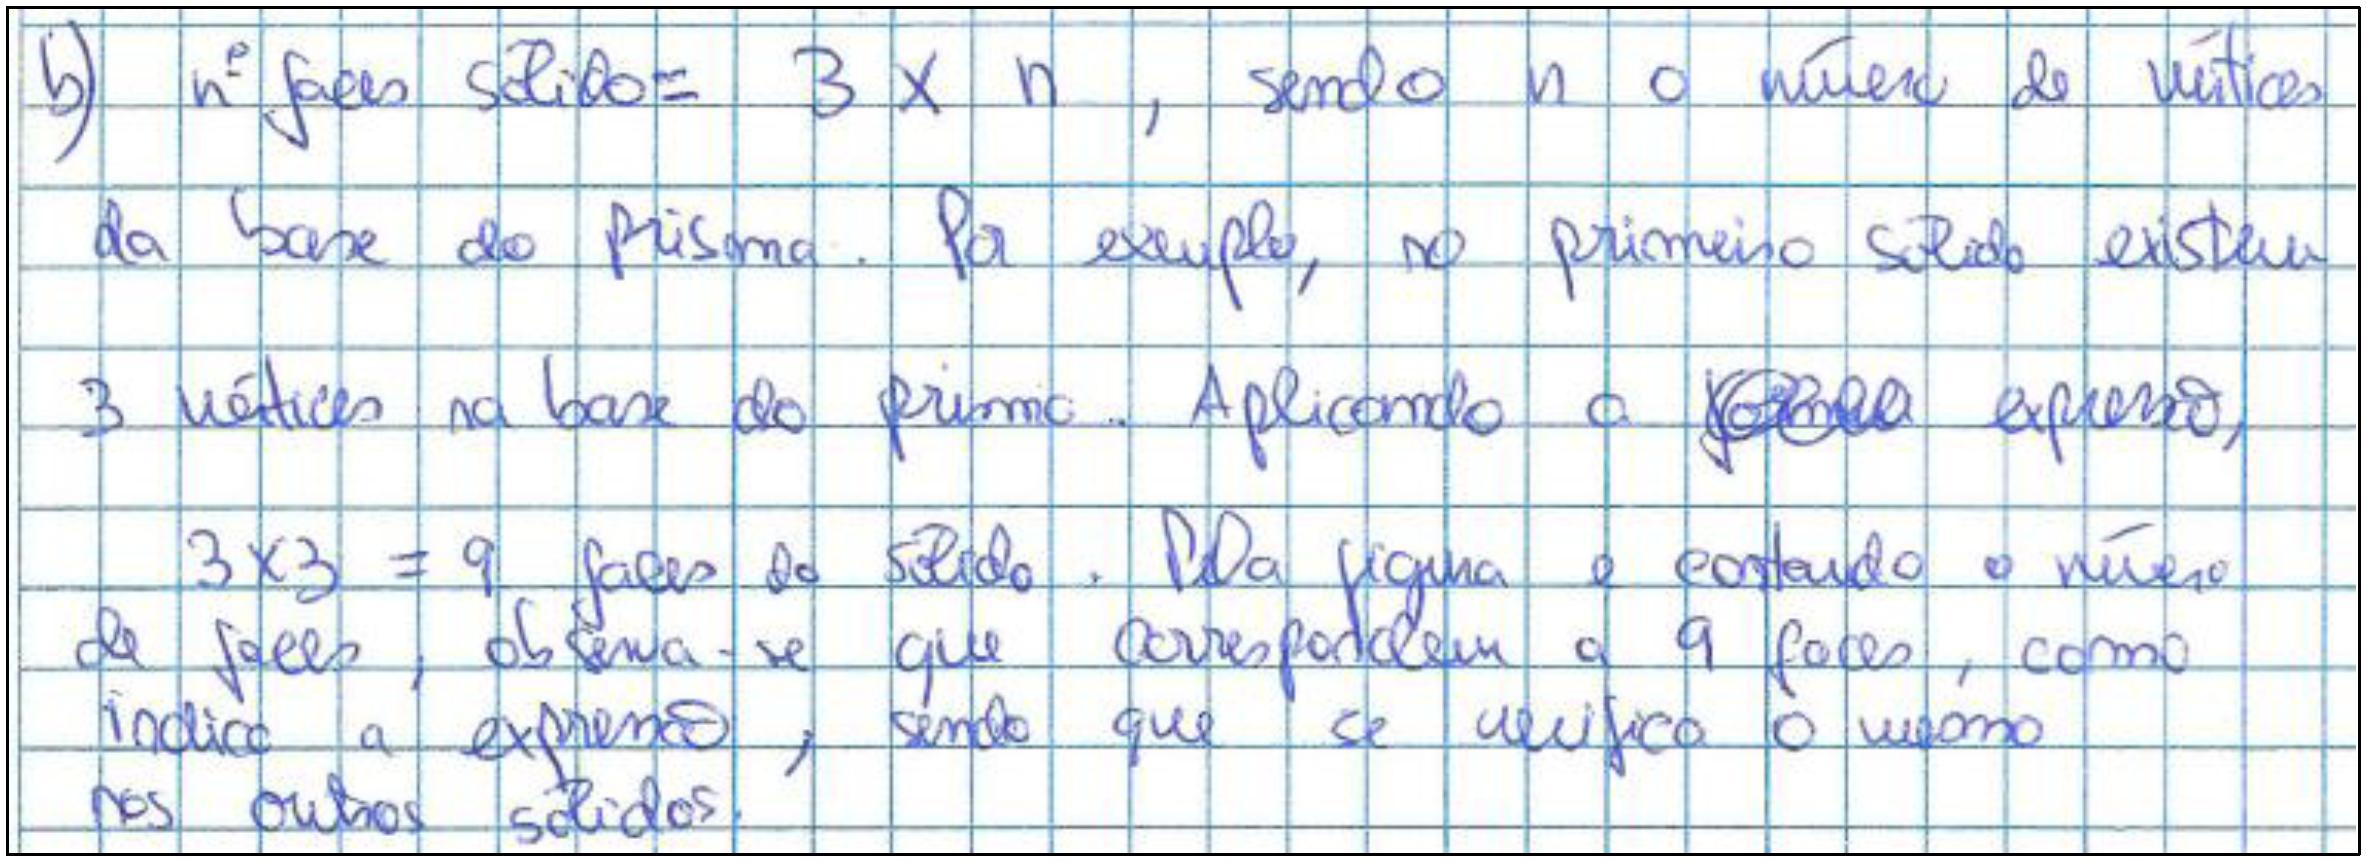 b) nº faces sólido = 3 x n , sendo n o número de vértices
da base do prisma. Por exemplo, no primeiro sólido existem
3 vértices na base do prisma. Aplicando a expressão,
3x3 = 9 faces do sólido. Pela figura e contando o número
de faces, observa-se que correspondem a 9 faces, como
indica a expressão, sendo que se verifica o mesmo
nos outros sólidos.